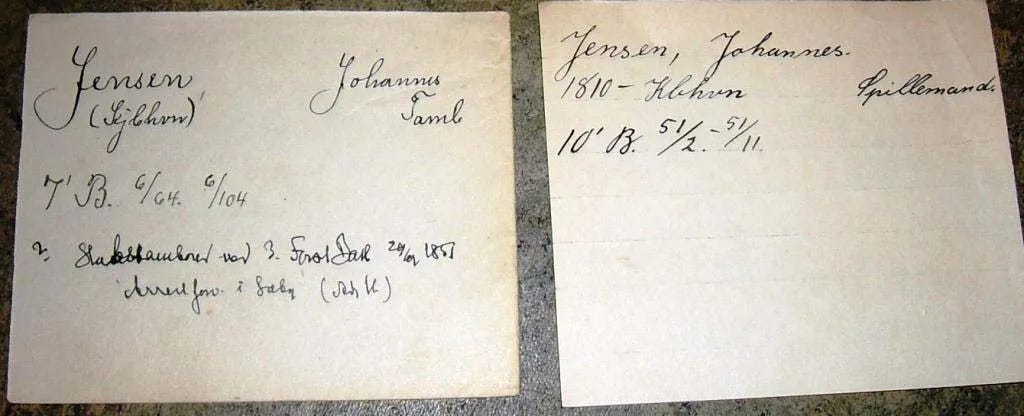 Jensen, Johannes
(Kjbhvn) Tamb
7' B. 6/64. 6/104
2. Stabstambour ved 3. Forst. Bat. 1851
Arrestforv. i Sæby
Jensen, Johannes.
1810 - Kbhvn Spillemand.
10' B. 51/2 - 51/11.